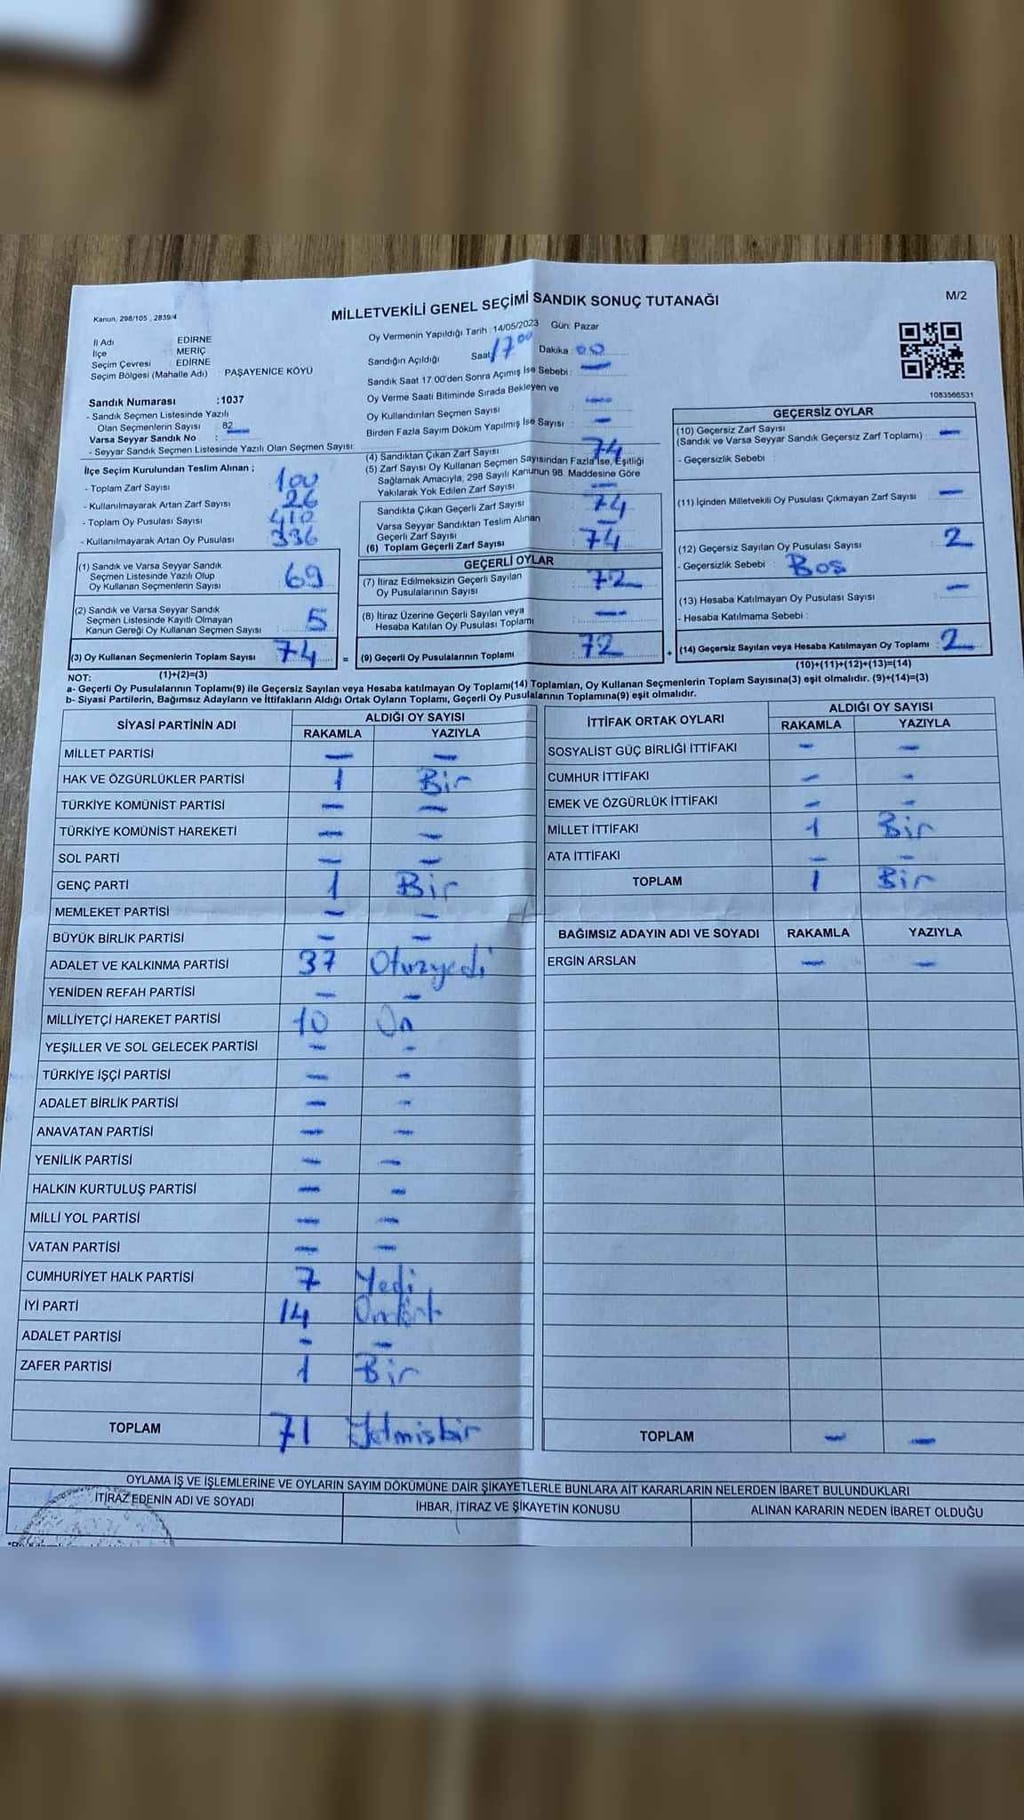 Kanun, 298/105 , 2839/4
MİLLETVEKİLİ GENEL SEÇİMİ SANDIK SONUÇ TUTANAĞI
M/2
İl Adı : EDİRNE
İlçe : MERİÇ
Seçim Çevresi : EDİRNE
Seçim Bölgesi (Mahalle Adı) : PAŞAYENİCE KÖYÜ
Oy Vermenin Yapıldığı Tarih : 14/05/2023 Gün: Pazar
Sandığın Açıldığı Saat 17 00 Dakika : 00
Sandık Saat 17 00'den Sonra Açımış İse Sebebi : —
Oy Verme Saati Bitiminde Sırada Bekleyen ve
Oy Kullandırılan Seçmen Sayısı : —
Birden Fazla Sayım Döküm Yapılmış İse Sayısı : —
1083566531
Sandık Numarası : 1037
- Sandık Seçmen Listesinde Yazılı
Olan Seçmenlerin Sayısı : 82
Varsa Seyyar Sandık No :
- Seyyar Sandık Seçmen Listesinde Yazılı Olan Seçmen Sayısı:
İlçe Seçim Kurulundan Teslim Alınan ;
- Toplam Zarf Sayısı : 100
- Kullanılmayarak Artan Zarf Sayısı : 26
- Toplam Oy Pusulası Sayısı : 410
- Kullanılmayarak Artan Oy Pusulası : 336
(1) Sandık ve Varsa Seyyar Sandık
Seçmen Listesinde Yazılı Olup
Oy Kullanan Seçmenlerin Sayısı : 69
(2) Sandık ve Varsa Seyyar Sandık
Seçmen Listesinde Kayıtlı Olmayan
Kanun Gereği Oy Kullanan Seçmen Sayısı : 5
(3) Oy Kullanan Seçmenlerin Toplam Sayısı : 74
(1)+(2)=(3)
(4) Sandıktan Çıkan Zarf Sayısı : 74
(5) Zarf Sayısı Oy Kullanan Seçmen Sayısından Fazla İse, Eşitliği
Sağlamak Amacıyla, 298 Sayılı Kanunun 98. Maddesine Göre
Yakılarak Yok Edilen Zarf Sayısı : —
Sandıkta Çıkan Geçerli Zarf Sayısı : 74
Varsa Seyyar Sandıktan Teslim Alınan
Geçerli Zarf Sayısı : —
(6) Toplam Geçerli Zarf Sayısı : 74
GEÇERLİ OYLAR
(7) İtiraz Edilmeksizin Geçerli Sayılan
Oy Pusulalarının Sayısı : 72
(8) İtiraz Üzerine Geçerli Sayılan veya
Hesaba Katılan Oy Pusulası Toplamı : —
= (9) Geçerli Oy Pusulalarının Toplamı : 72
GEÇERSİZ OYLAR
(10) Geçersiz Zarf Sayısı
(Sandık ve Varsa Seyyar Sandık Geçersiz Zarf Toplamı) : —
- Geçersizlik Sebebi :
(11) İçinden Milletvekili Oy Pusulası Çıkmayan Zarf Sayısı : —
(12) Geçersiz Sayılan Oy Pusulası Sayısı : 2
- Geçersizlik Sebebi : Boş
(13) Hesaba Katılmayan Oy Pusulası Sayısı : —
- Hesaba Katılmama Sebebi :
+ (14) Geçersiz Sayılan veya Hesaba Katılmayan Oy Toplamı : 2
(10)+(11)+(12)+(13)=(14)
NOT:
a- Geçerli Oy Pusulalarının Toplamı(9) ile Geçersiz Sayılan veya Hesaba katılmayan Oy Toplamı(14) Toplamları, Oy Kullanan Seçmenlerin Toplam Sayısına(3) eşit olmalıdır. (9)+(14)=(3)
b- Siyasi Partilerin, Bağımsız Adayların ve İttifakların Aldığı Ortak Oyların Toplamı, Geçerli Oy Pusulalarının Toplamına(9) eşit olmalıdır.
SİYASİ PARTİNİN ADI ALDIĞI OY SAYISI
RAKAMLA YAZIYLA
MİLLET PARTİSİ — —
HAK VE ÖZGÜRLÜKLER PARTİSİ 1 Bir
TÜRKİYE KOMÜNİST PARTİSİ — —
TÜRKİYE KOMÜNİST HAREKETİ — —
SOL PARTİ — —
GENÇ PARTİ 1 Bir
MEMLEKET PARTİSİ — —
BÜYÜK BİRLİK PARTİSİ — —
ADALET VE KALKINMA PARTİSİ 37 Otuzyedi
YENİDEN REFAH PARTİSİ — —
MİLLİYETÇİ HAREKET PARTİSİ 10 On
YEŞİLLER VE SOL GELECEK PARTİSİ — —
TÜRKİYE İŞÇİ PARTİSİ — —
ADALET BİRLİK PARTİSİ — —
ANAVATAN PARTİSİ — —
YENİLİK PARTİSİ — —
HALKIN KURTULUŞ PARTİSİ — —
MİLLİ YOL PARTİSİ — —
VATAN PARTİSİ — —
CUMHURİYET HALK PARTİSİ 7 Yedi
İYİ PARTİ 14 Ondört
ADALET PARTİSİ — —
ZAFER PARTİSİ 1 Bir
TOPLAM 71 Yetmişbir
İTTİFAK ORTAK OYLARI ALDIĞI OY SAYISI
RAKAMLA YAZIYLA
SOSYALİST GÜÇ BİRLİĞİ İTTİFAKI — —
CUMHUR İTTİFAKI — —
EMEK VE ÖZGÜRLÜK İTTİFAKI — —
MİLLET İTTİFAKI 1 Bir
ATA İTTİFAKI — —
TOPLAM 1 Bir
BAĞIMSIZ ADAYIN ADI VE SOYADI RAKAMLA YAZIYLA
ERGİN ARSLAN — —
TOPLAM — —
OYLAMA İŞ VE İŞLEMLERİNE VE OYLARIN SAYIM DÖKÜMÜNE DAİR ŞİKAYETLERLE BUNLARA AİT KARARLARIN NELERDEN İBARET BULUNDUKLARI
İTİRAZ EDENİN ADI VE SOYADI İHBAR, İTİRAZ VE ŞİKAYETİN KONUSU ALINAN KARARIN NEDEN İBARET OLDUĞU